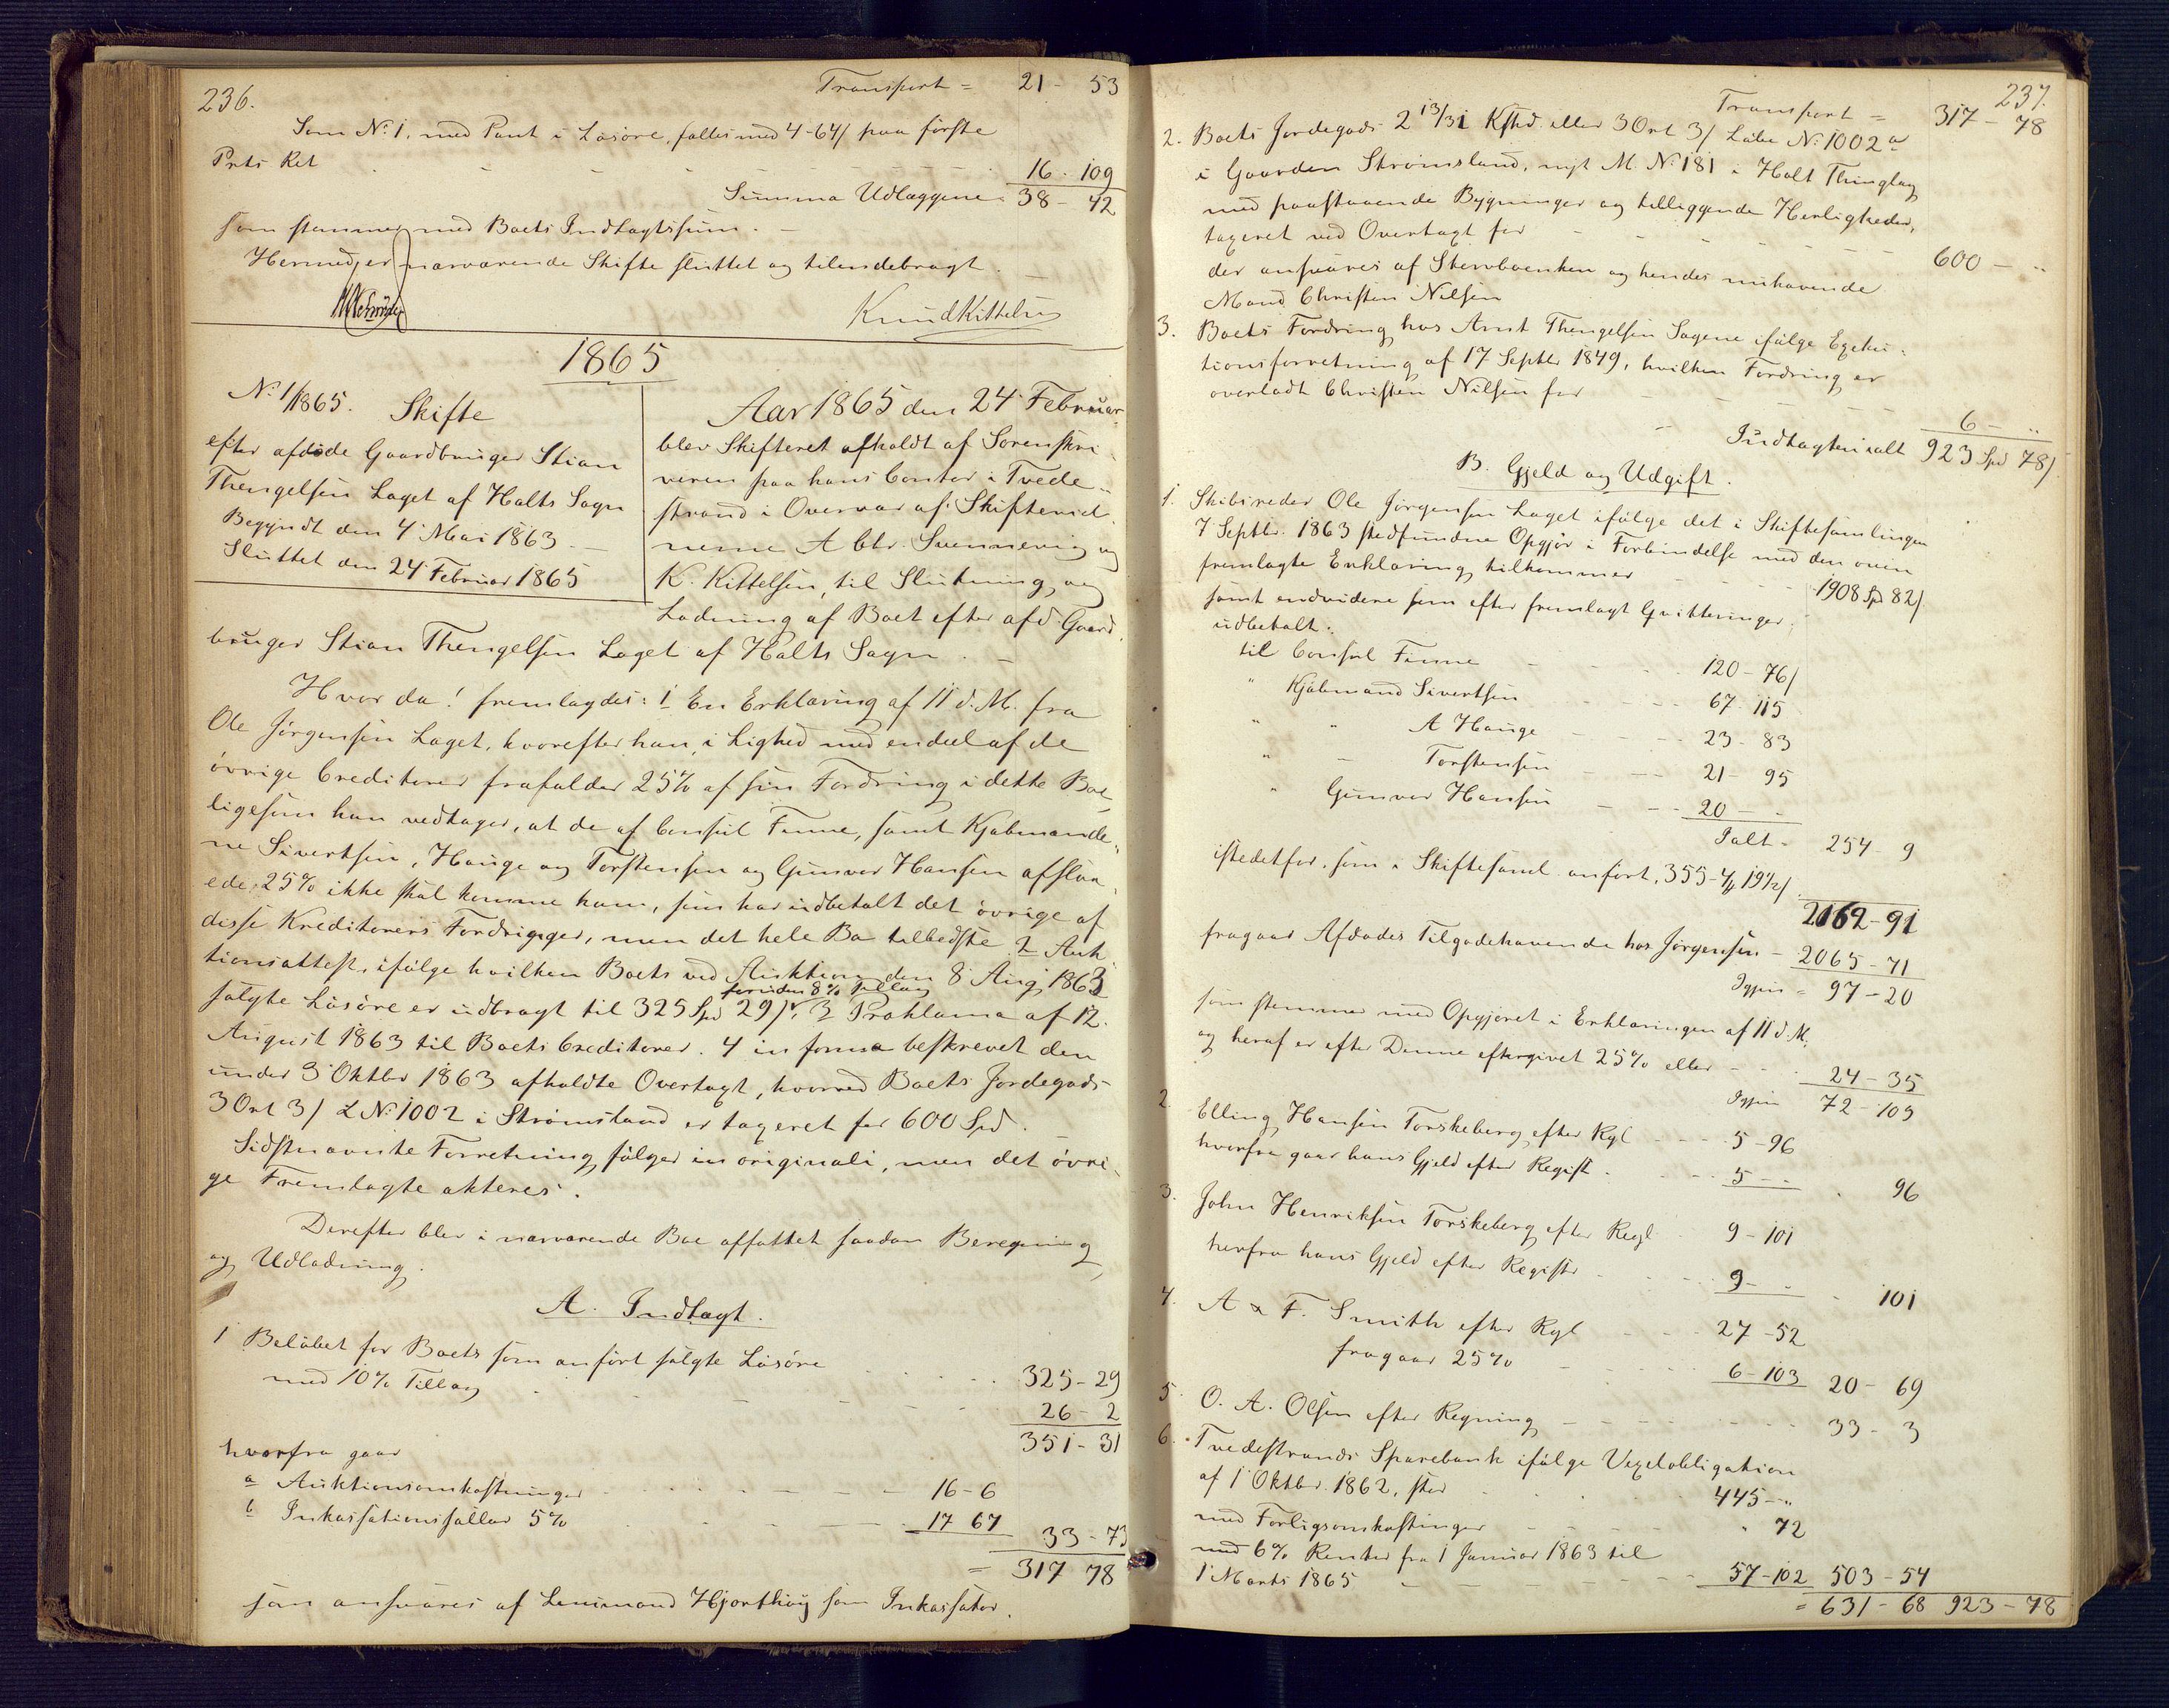 236.
Transport = 21 - 53
Som No 1. med Pant i Løsøre, falles med 4-64/ paa første
Prts Ret - - - - 16 - 109
Summa Udlæggene 38 - 42
som stemmer med Boets Indtægtssum. -
Hermed er nærværende Skifte sluttet og tilendebragt. -
Knud Kittelsen
1865
No 1/1865. Skifte
efter afdøde Gaardbruger Stian
Thengelsen Laget af Holts Sogn
Begyndt den 4 Mai 1863 -
Sluttet den 24 Februar 1865
Aar 1865 den 24 Februar
blev Skifteret afholdt af Sorenskri-
veren paa hans Contor i Tvede-
strand i Overvær af Skiftevid-
nerne A Chr. Svennevig og
K. Kittelsen, til Slutning og
Lodning af Boet efter afd. Gaard-
bruger Stian Thengelsen Laget af Holts Sogn. -
Hvor da! fremlagdes: 1 En Erklæring af 11 d. M. fra
Ole Jørgensen Laget, hvorefter han, i Lighed med endeel af de
øvrige Creditorer frafalder 25% af sin Fordring i dette Boe,
ligesom han vedtager, at de af Consul Finne, samt Kjøbmænde-
ne Sivertsen, Hauge og Torstensen og Gunvor Hansen afslaa-
ede 25% ikke skal komme ham, som har udbetalt det øvrige af
disse Kreditorers Fordringer, men det hele Bo tilbedste 2 Auk
tionsattest, ifølge hvilken Boets ved Auktion den 8 Aug 1863
foruden 8% Tillæg
solgte Løsøre er udbragt til 325 Spd 29/. 3 Proklama af 12.
August 1863 til Boets Creditorer. 4 in forma beskrevet den
under 3 Oktbr 1863 afholdte Overtagt, hvorved Boets Jordegods
3 Ort 3/ L No 1002 i Strømsland er taxeret for 600 Spd.
Sidstnævnte Forretning følger in originali, men det øvri-
ge Fremlagte akteres.
Derefter blev i nærværende Boe affattet saadan Beregning
og Udlodning.
A. Indtægt.
1 Beløbet for Boets som anført solgte Løsøre - - - 325 - 29
med 10% Tillæg - - - - 26 - 2
351 - 31
hvorfra gaar
a Auktionsomkostninger - - - - 16 - 6
b Inkassationssallær 5% - - - 17 67 33 - 73
= 317 78
som ansvares af Lensmand Hjorthøy som Inkassator.
237.
Transport = 317 - 78
2. Boets Jordegods 2 13/31 Kfhd. eller 3 Ort 3/ Løbe No 1002 a
i Gaarden Strømsland, nyt M. No 181 i Holt Thinglag
med paastaaende Bygninger og tilliggende Herligheder,
taxeret ved Overtagt for - - - - 600 - "
der ansvares af Stervboenken og hendes nuhavende
Mand Christen Nilsen
3. Boets Fordring hos Arnt Thengelsen Sagene ifølge Exeku-
tionsforretning af 17 Septbr 1849, hvilken Fordring er
overladt Christen Nilsen for - - - - 6 - "
Indtægten ialt 923 Spd 78/.
B. Gjeld og Udgift.
1. Skibsreder Ole Jørgensen Laget ifølge det i Skiftesamlingen
7 Septbr. 1863 stedfundne Opgjør i Forbindelse med den oven
fremlagte Erklæring tilkommer - - - 1908 Spd 82/
samt endvidere som efter fremlagt Qvitteringer
udbetalt.
til Consul Finne - - - 120 - 76/
" Kjøbmand Sivertsen - - - 67 - 115
" " A Hauge - - - 23 - 83
" - Torstensen - - - 21 - 95
" Gunvor Hansen - - - 20 - -
Ialt - 254 - 9
istedetfor, som i Skiftesaml. anført, 355-4/ 19 1/2/
2162 - 91
fragaar Afdødes Tilgodehavende hos Jørgensen - 2065 - 71
Igjen = 97 - 20
som stemmer med Opgjøret i Erklæringen af 11 d. M.
og heraf er efter Denne eftergivet 25% eller - - - 24 - 35
Igjen 72 - 103
2. Elling Hansen Torskeberg efter Rgl - - - 5 - 96
hvorfra gaar hans Gjeld efter Regist. - - - 5 - - . 96
3. John Henriksen Torskeberg efter Regl - 9 - 101
herfra hans Gjeld efter Registr - - - 9 - - . 101
4. A & F. Smith efter Rgl - - - 27 - 52
fragaar 25% - - - 6 - 103 20 - 69
5. O. A. Olsen efter Regning - - - - 33 - 3
6. Tvedestrands Sparebank ifølge Vexelobligation
af 1 Oktbr. 1862, stor - - - 445 - "
med Forligsomkostninger - - - " 72
med 6% Renter fra 1 Januar 1863 til
1 Marts 1865 - - - 57 - 102 503 - 54
= 631 - 68 923 - 78